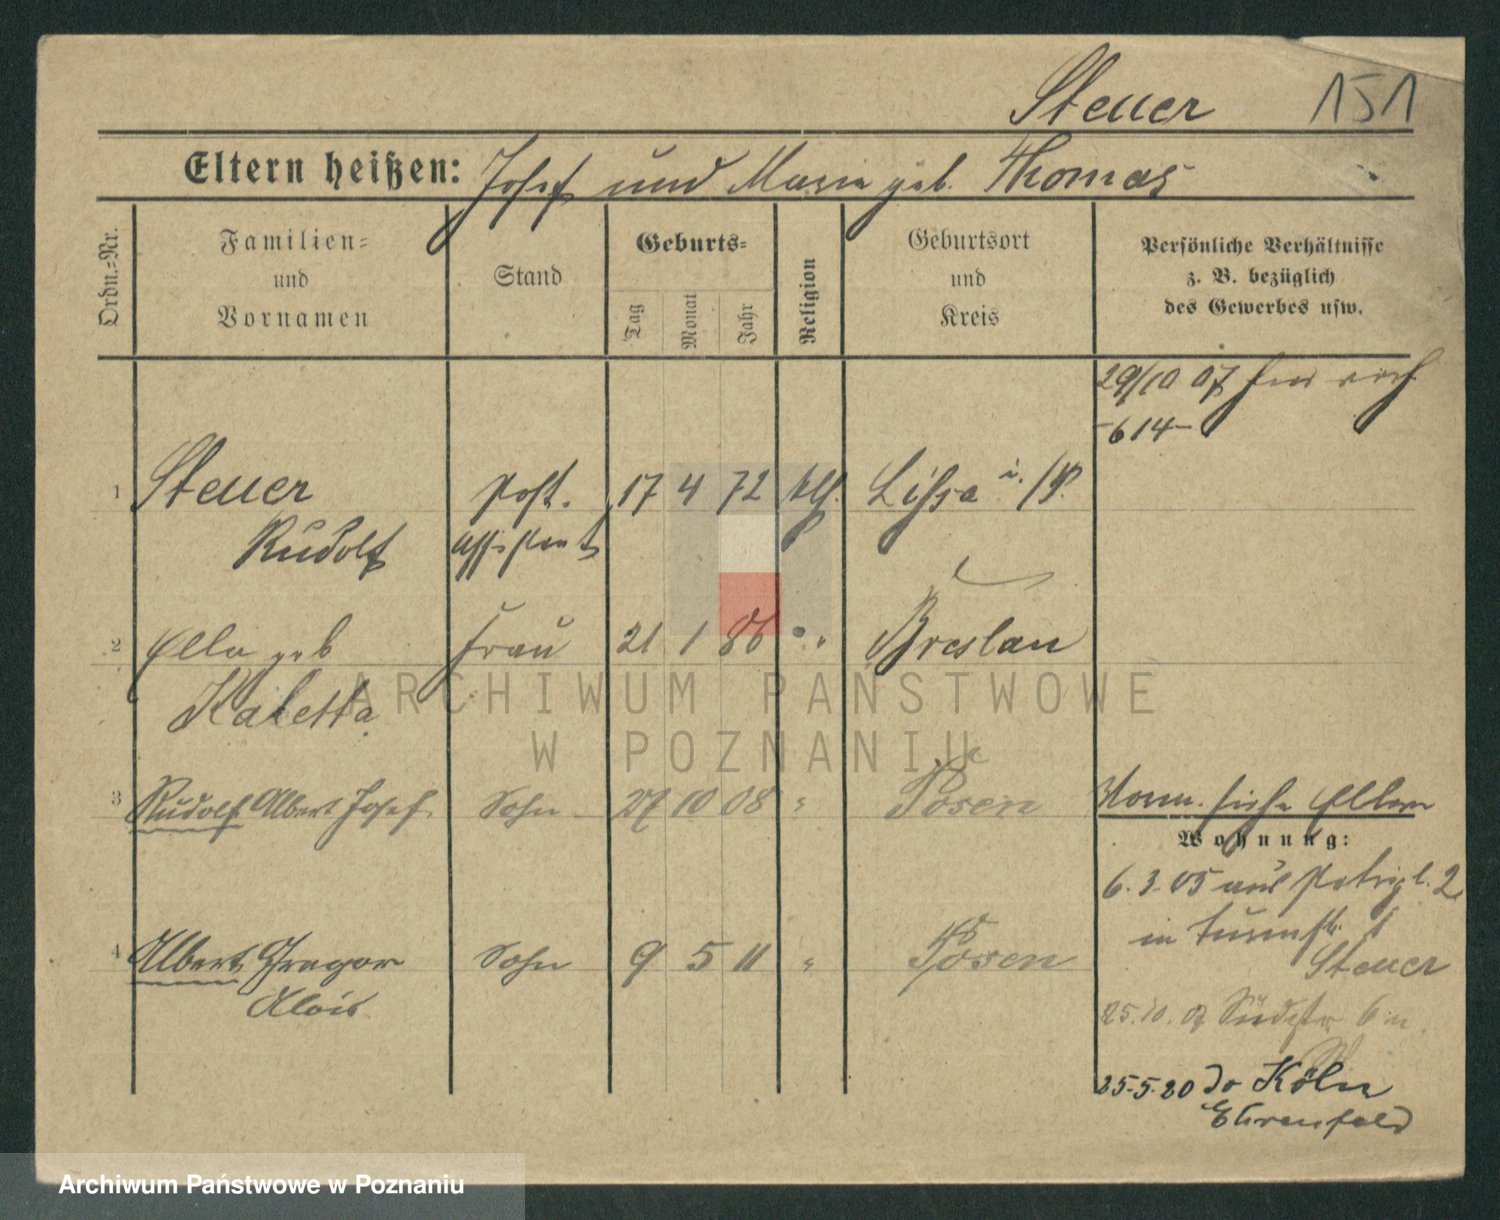 Steuer 151
Eltern heißen: Josef und Marie geb. Thomas
Ordn.-Nr.
Familien-
und
Vornamen
Stand
Geburts-
Tag
Monat
Jahr
Religion
Geburtsort
und
Kreis
Persönliche Verhältnisse
z. B. bezüglich
des Gewerbes usw.
29/10 07
-614-
1 Steuer Post. 17 4 72 kth. Lissa i./P.
Rudolf Assistent
2 Ella geb Frau 21 1 86 " Breslau
Kaletta
3 Rudolf Albert Josef Sohn 27 10 08 " Posen
Norm. siehe Eltern
Wohnung:
6.3.05 aus 2
in Turmstr. 1
Steuer
4 Albert Gregor Sohn 9 5 11 " Posen
Alois
25.10.07 Südstr 6
25.5.20 do Köln
Ehrenfeld
ARCHIWUM PAŃSTWOWE
W POZNANIU
Archiwum Państwowe w Poznaniu